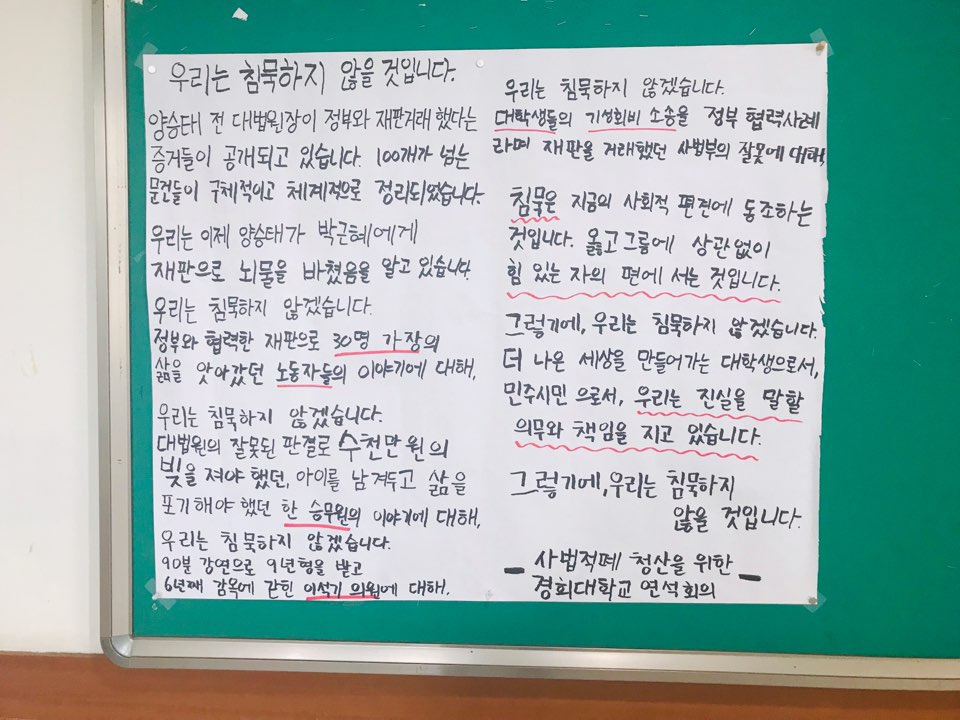 우리는 침묵하지 않을 것입니다.
양승태 전 대법원장이 정부와 재판거래 했다는
증거들이 공개되고 있습니다. 100개가 넘는
문건들이 구체적이고 체계적으로 정리되었습니다.
우리는 이제 양승태가 박근혜에게
재판으로 뇌물을 바쳤음을 알고 있습니다.
우리는 침묵하지 않겠습니다.
정부와 협력한 재판으로 30명 가장의
삶을 앗아갔던 노동자들의 이야기에 대해,
우리는 침묵하지 않겠습니다.
대법원의 잘못된 판결로 수천만원의
빚을 져야 했던, 아이를 남겨두고 삶을
포기해야 했던 한 승무원의 이야기에 대해,
우리는 침묵하지 않겠습니다.
90분 강연으로 9년형을 받고
6년째 감옥에 갇힌 이석기 의원에 대해.
우리는 침묵하지 않겠습니다.
대학생들의 기성회비 소송을 정부 협력사례
라며 재판을 거래했던 사법부의 잘못에 대해,
침묵은 지금의 사회적 편견에 동조하는
것입니다. 옳고그름에 상관없이
힘 있는 자의 편에 서는 것입니다.
그렇기에, 우리는 침묵하지 않겠습니다.
더 나은 세상을 만들어가는 대학생으로서,
민주시민 으로서, 우리는 진실을 말할
의무와 책임을 지고 있습니다.
그렇기에, 우리는 침묵하지
않을 것입니다.
- 사법적폐 청산을 위한 -
경희대학교 연석회의